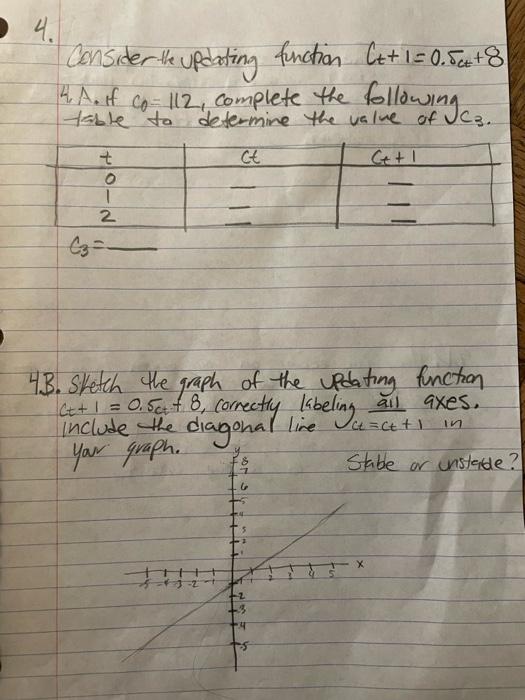 4.
Consider the updating function Ct+1=0.5ct+8
4.A. If c0=112, complete the following
table to determine the value of C3.
t Ct Ct+1
0
1
2
C3=
4.B. Sketch the graph of the updating function
Ct+1 = 0.5ct+8, correctly labeling all axes.
Include the diagonal line Ct=ct+1 in
your graph.
Stable or unstable?
y
8
7
6
5
4
3
2
1
-5 -4 -3 -2 -1 1 2 3 4 5 x
-2
-3
-4
-5